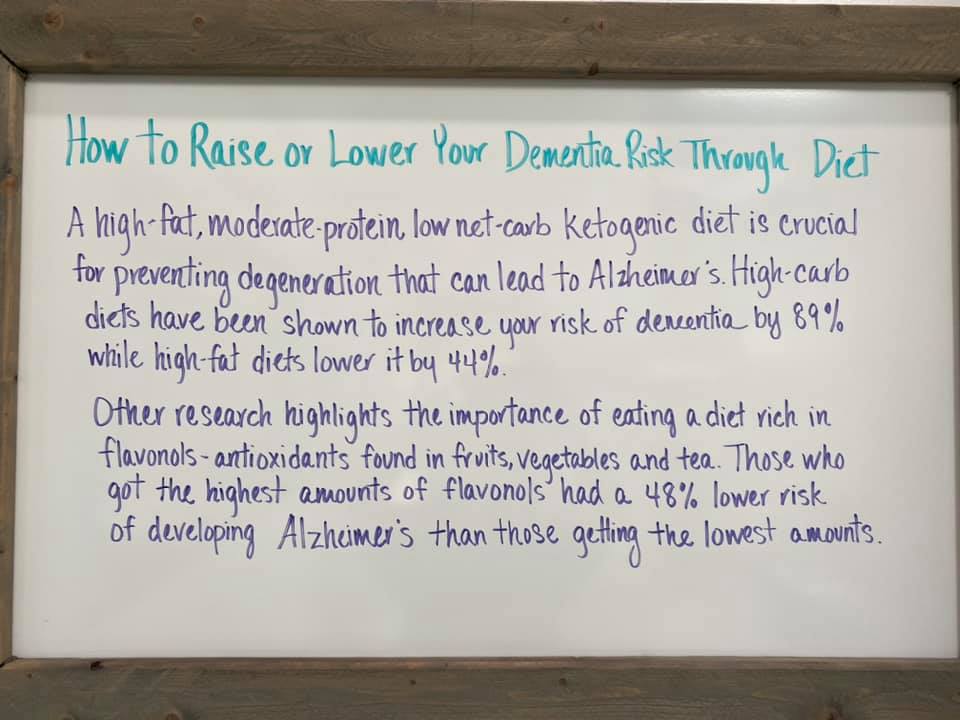 How to Raise or Lower Your Dementia Risk Through Diet
A high-fat, moderate-protein, low net-carb ketogenic diet is crucial
for preventing degeneration that can lead to Alzheimer's. High-carb
diets have been shown to increase your risk of dementia by 89%
while high-fat diets lower it by 44%.
Other research highlights the importance of eating a diet rich in
flavonols - antioxidants found in fruits, vegetables and tea. Those who
got the highest amounts of flavonols had a 48% lower risk
of developing Alzheimer's than those getting the lowest amounts.